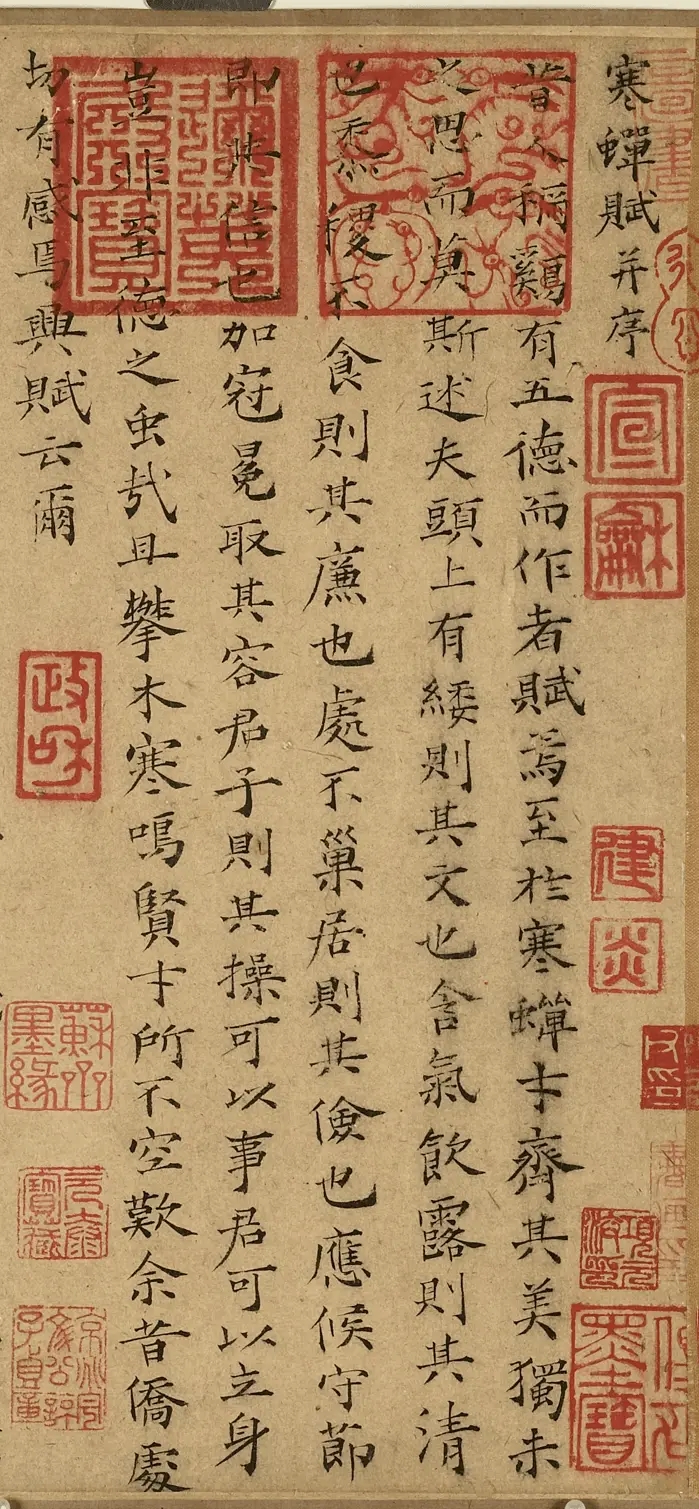 寒蟬賦并序
昔人稱鷄有五德而作者賦焉至於寒蟬才齊其美獨未
之思而莫斯述夫頭上有緌則其文也含氣飲露則其清
也黍稷不食則其廉也處不巢居則其儉也應候守節
即其信也加冠冕取其容君子則其操可以事君可以立身
豈非至德之虫哉且攀木寒鳴賢才所不空歎余昔僑處
切有感焉興賦云爾
宣
龢
建
炎
政和